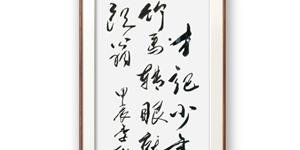 才记少年
竹马转眼就
头翁
甲辰